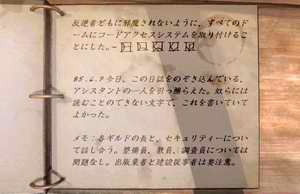 反逆者どもに邪魔されないように、すべてのド
ームにコードアクセスシステムを取り付けるこ
とにした。－
85.6.7 今日、この日誌をのぞき込んでいる、
アシスタントの一人を引っ捕らえた。奴らには
読むことのできない文字で、これを書いていて
よかった。
メモ：各ギルドの長と、セキュリティーについ
て話し合う。整備員、教員、調査員については
問題なし。出版業者と建設従事者は要注意。